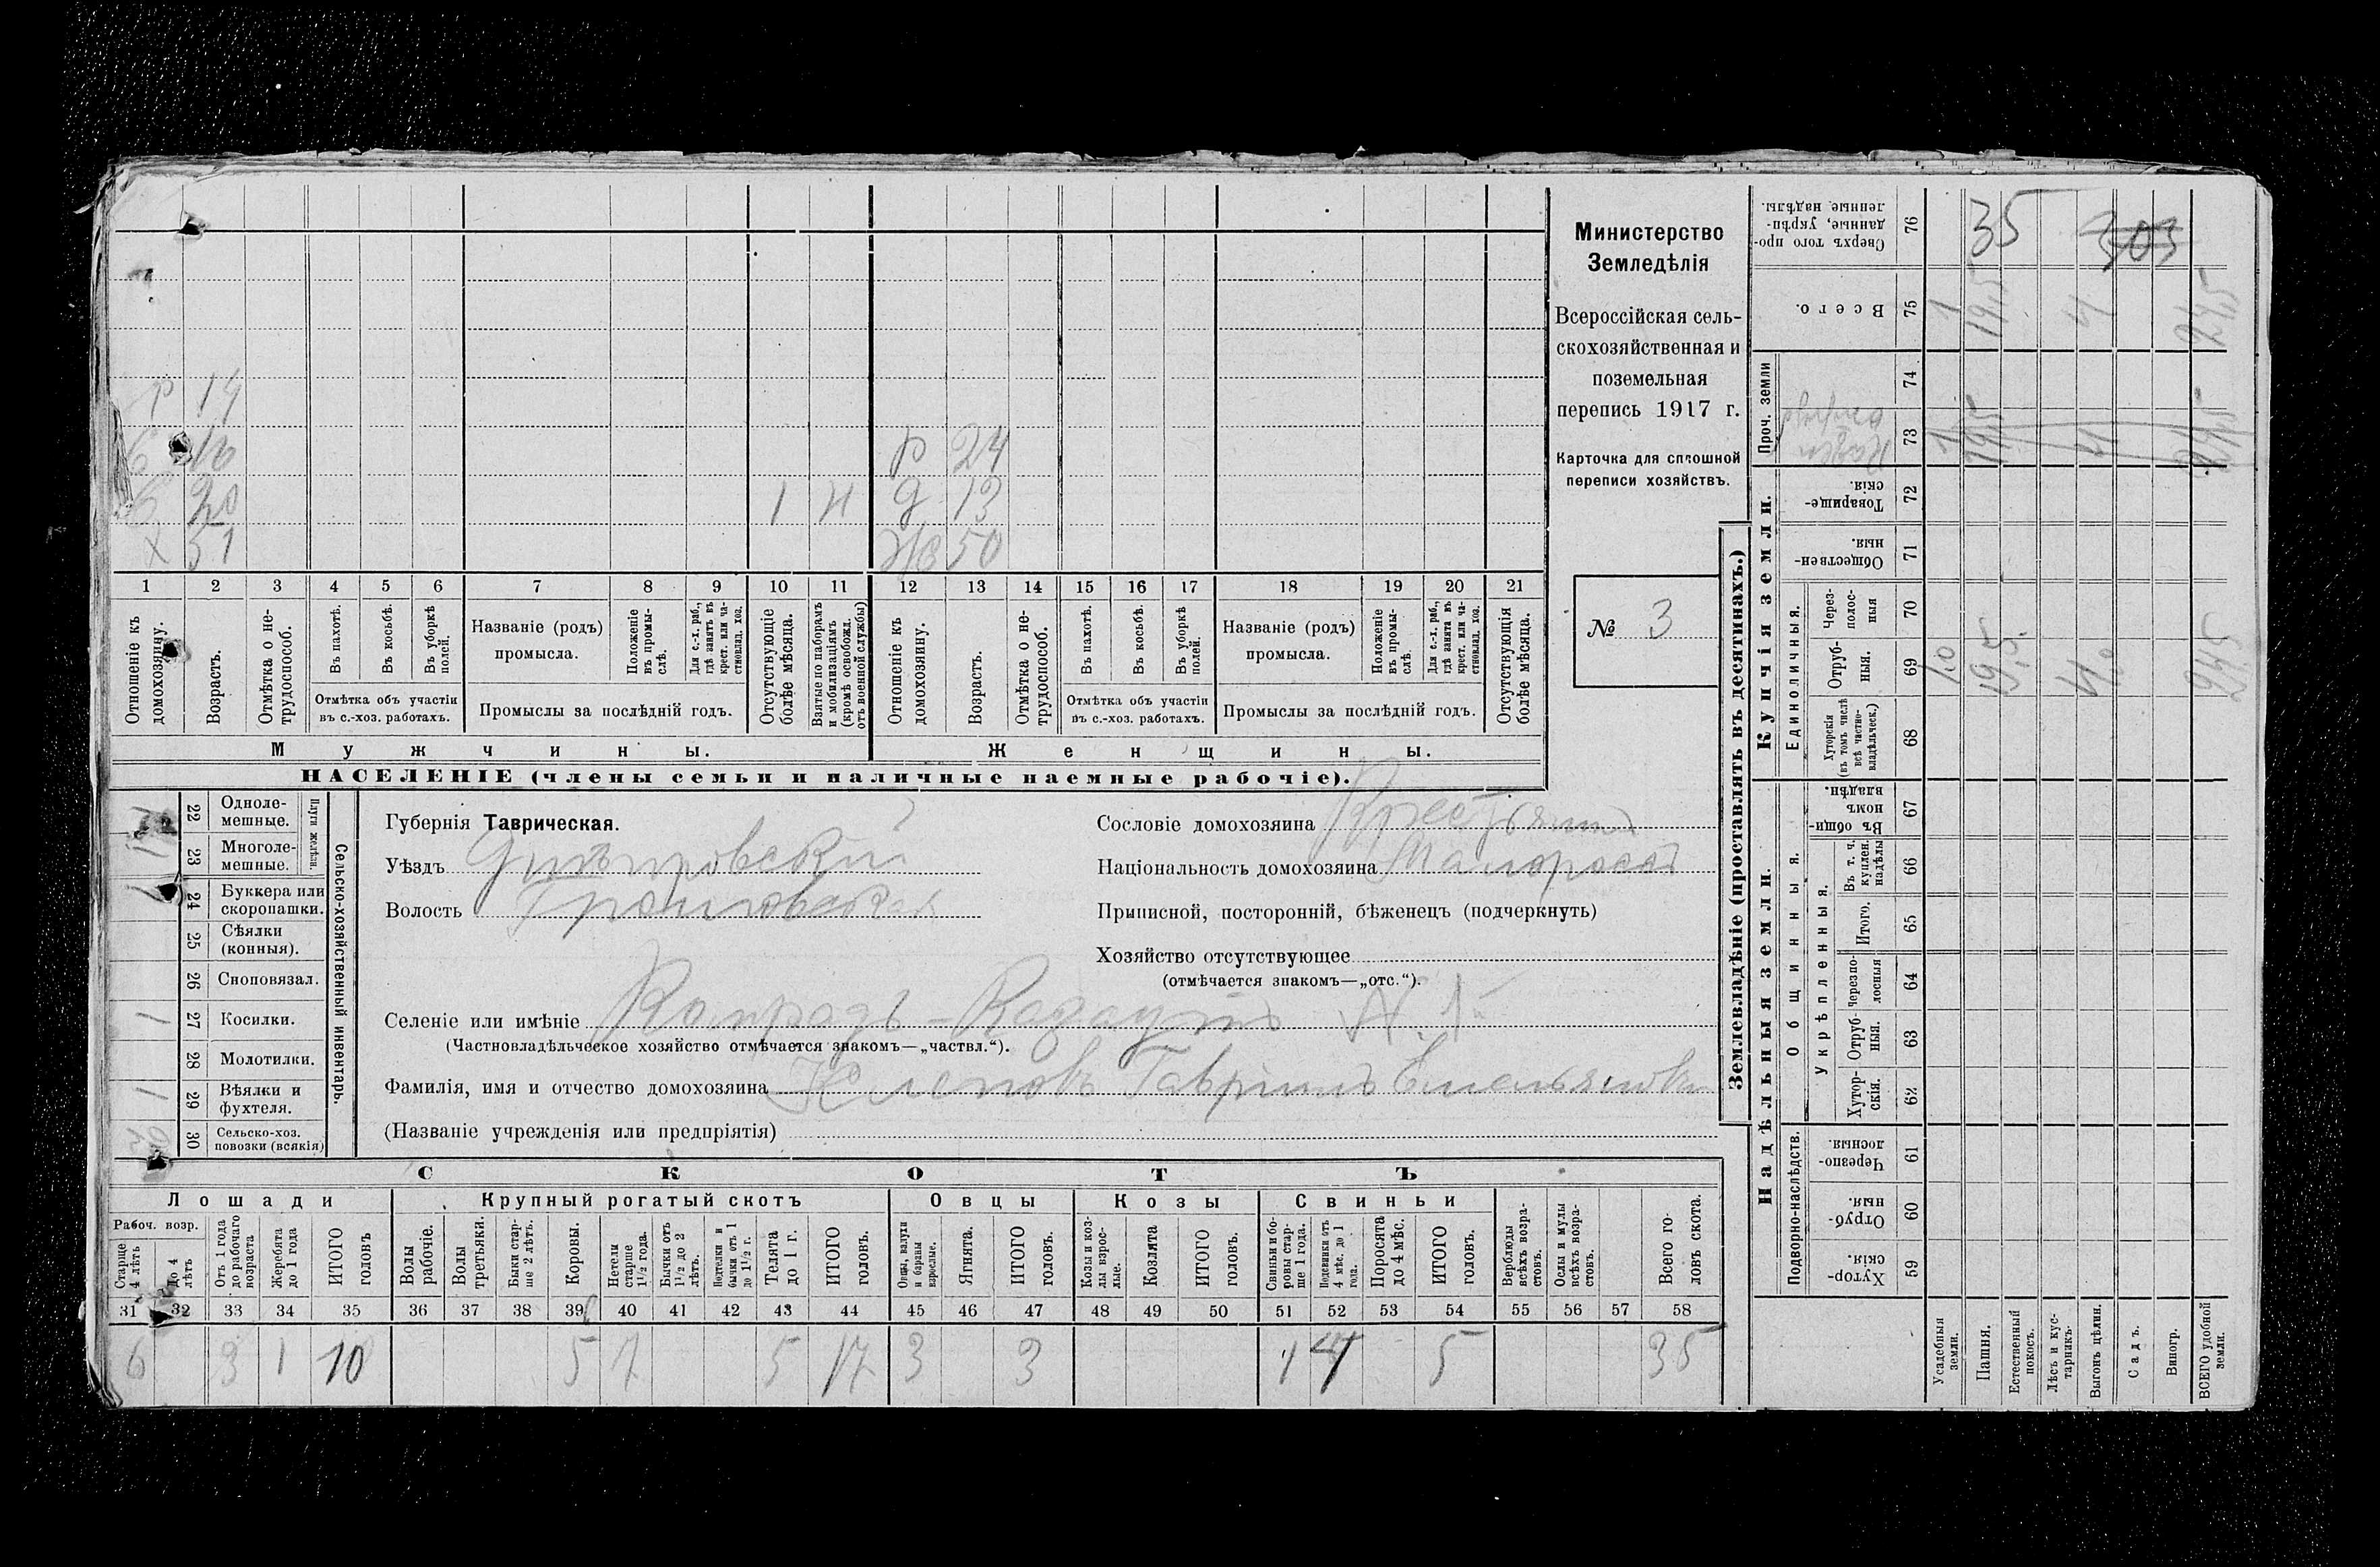 Министерство
Земледѣлія
Всероссійская сель-
скохозяйственная и
поземельная
перепись 1917 г.
Карточка для сплошной
переписи хозяйствъ.
№ 3
р 19
б 16
б 20 1 Н
х 51
р 24
д 13
ж 50
1 2 3 4 5 6 7 8 9 10 11 12 13 14 15 16 17 18 19 20 21
Отношеніе къ домохозяину.
Возрастъ.
Отмѣтка о не-трудоспособ.
Въ пахотѣ.
Въ косьбѣ.
Въ уборкѣ полей.
Отмѣтка объ участіи въ с.-хоз. работахъ.
Названіе (родъ) промысла.
Положеніе въ промы-слѣ.
Для с.-х. раб., гдѣ занятъ въ крест. или ча-стновлад. хоз.
Промыслы за послѣдній годъ.
Отсутствующіе болѣе мѣсяца.
Взятые по наборамъ и мобилизаціямъ (кромѣ освобожд. отъ военной службы)
Отношеніе къ домохозяину.
Возрастъ.
Отмѣтка о не-трудоспособ.
Въ пахотѣ.
Въ косьбѣ.
Въ уборкѣ полей.
Отмѣтка объ участіи въ с.-хоз. работахъ.
Названіе (родъ) промысла.
Положеніе въ промы-слѣ.
Для с.-х. раб., гдѣ занята въ крест. или ча-стновлад. хоз.
Промыслы за послѣдній годъ.
Отсутствующія болѣе мѣсяца.
Мужчины.
Женщины.
НАСЕЛЕНІЕ (члены семьи и наличные наемные рабочіе).
Сельско-хозяйственный инвентарь.
Плуги желѣзн.
22 Одноле-мешные.
23 Многоле-мешные. 1
24 Буккера или скоропашки. 1
25 Сѣялки (конныя).
26 Сноповязал.
27 Косилки. 1
28 Молотилки.
29 Вѣялки и фухтеля. 1
30 Сельско-хоз. повозки (всякія)
Губернія Таврическая.
Уѣздъ Днѣпровскій
Волость
Сословіе домохозяина Крестьянинъ
Національность домохозяина Малороссъ
Приписной, посторонній, бѣженецъ (подчеркнуть)
Хозяйство отсутствующее
(отмѣчается знакомъ—„отс.“).
Селеніе или имѣніе № 1
(Частновладѣльческое хозяйство отмѣчается знакомъ—„частвл.“).
Фамилія, имя и отчество домохозяина Гавріилъ Емельяновъ
(Названіе учрежденія или предпріятія)
СКОТЪ
Лошади
Крупный рогатый скотъ
Овцы
Козы
Свиньи
Рабоч. возр.
Старше 4 лѣтъ
До 4 лѣтъ
Отъ 1 года до рабочаго возраста
Жеребята до 1 года
ИТОГО головъ
Волы рабочіе.
Волы третьяки.
Быки стар-ше 2 лѣтъ.
Коровы.
Нетели старше 1½ года.
Бычки отъ 1½ до 2 лѣтъ.
Подтелки и бычки отъ 1 до 1½ г.
Телята до 1 г.
ИТОГО головъ.
Овцы, валухи и бараны взрослые.
Ягнята.
ИТОГО головъ.
Козы и коз-лы взрос-лые.
Козлята
ИТОГО головъ.
Свиньи и бо-ровы стар-ше 1 года.
Подсвинки отъ 4 мѣс. до 1 года.
Поросята до 4 мѣс.
ИТОГО головъ.
Верблюды всѣхъ возра-стовъ.
Ослы и мулы всѣхъ возра-стовъ.
Всего го-ловъ скота.
31 32 33 34 35 36 37 38 39 40 41 42 43 44 45 46 47 48 49 50 51 52 53 54 55 56 57 58
6 3 1 10 5 7 5 17 3 3 1 4 5 35
Землевладѣніе (проставлять въ десятинахъ.)
Надѣльныя земли.
Купчія земли.
Проч. земли
Подворно-наслѣдств.
Общинныя.
Укрѣпленныя.
Единоличныя.
Сверхъ того про-данные, укрѣп-ленные надѣлы. 76 35 303
Всего. 75 1 19,5 4 24,5
74
73 1 19,5 4 24,5
Товарище-скія. 72
Обществен-ныя. 71
Через-полос-ныя 70
Отруб-ныя. 69 1,0 19,5 4,0 24,5
Хуторскія (въ томъ числѣ всѣ частно-владѣльческ.) 68
Въ общи-номъ владѣн. 67
Въ т. ч. куплен. надѣлы 66
Итого. 65
Черезпо-лосныя 64
Отруб-ныя. 63
Хутор-скія. 62
Черезпо-лосныя. 61
Отруб-ныя. 60
Хутор-скія. 59
Усадебныя земли.
Пашня.
Естественный покосъ.
Лѣсъ и кус-тарникъ.
Выгонъ цѣлин.
Садъ.
Виногр.
ВСЕГО удобной земли.